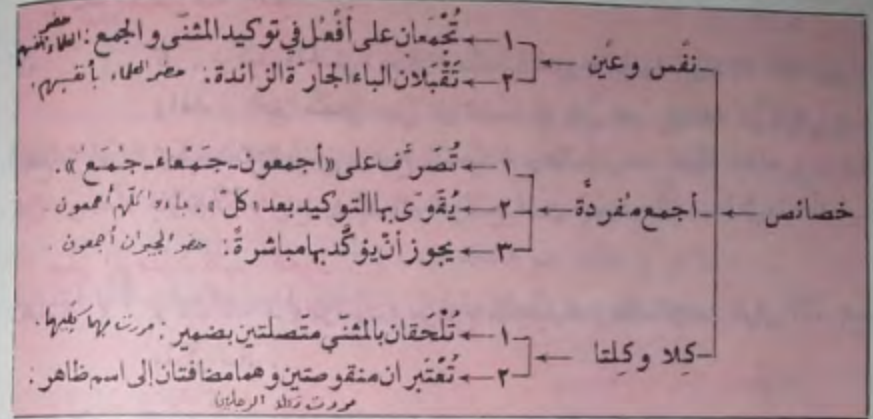 خصائص
ـ نفَس وعَين
١ ← تُجْمَعان على أفْعُل في توكيد المثنّى والجمع: حضر العلماء أنفسهم
٢ ← تَقْبَلان الباء الجارّة الزائدة: حضر العلماء بأنفسهم.
ـ أجمع مفردةً
١ ← تُصَرَّف على «أجمعون ـ جَمْعاء ـ جُمَعُ».
٢ ← يُقَوّى بها التوكيد بعد «كلّ». جاءوا كلّهم أجمعون.
٣ ← يجوز أنْ يؤكَّد بها مباشرةً: حضر الجيران أجمعون.
ـ كِلا وكِلتا
١ ← تُلْحَقان بالمثنّى متّصلتين بضمير: مررت بهما كليهما.
٢ ← تُعْتَبران منقوصتين وهما مضافتان إلى اسم ظاهر:
مررت بكلا الرجلين